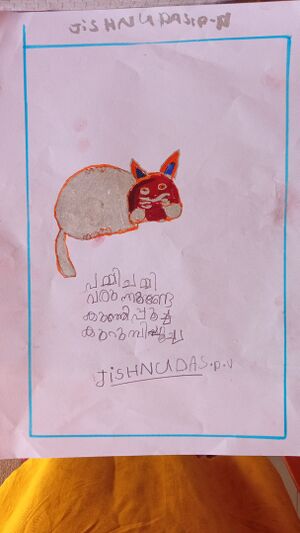 JiSHNUDAS.P.V
പമ്മിചമ്മി
വരുന്നുണ്ടേ
കുഞ്ഞിപ്പൂച്ച
കുറുമ്പിപ്പൂച്ച
JiSHNUDAS.P.V